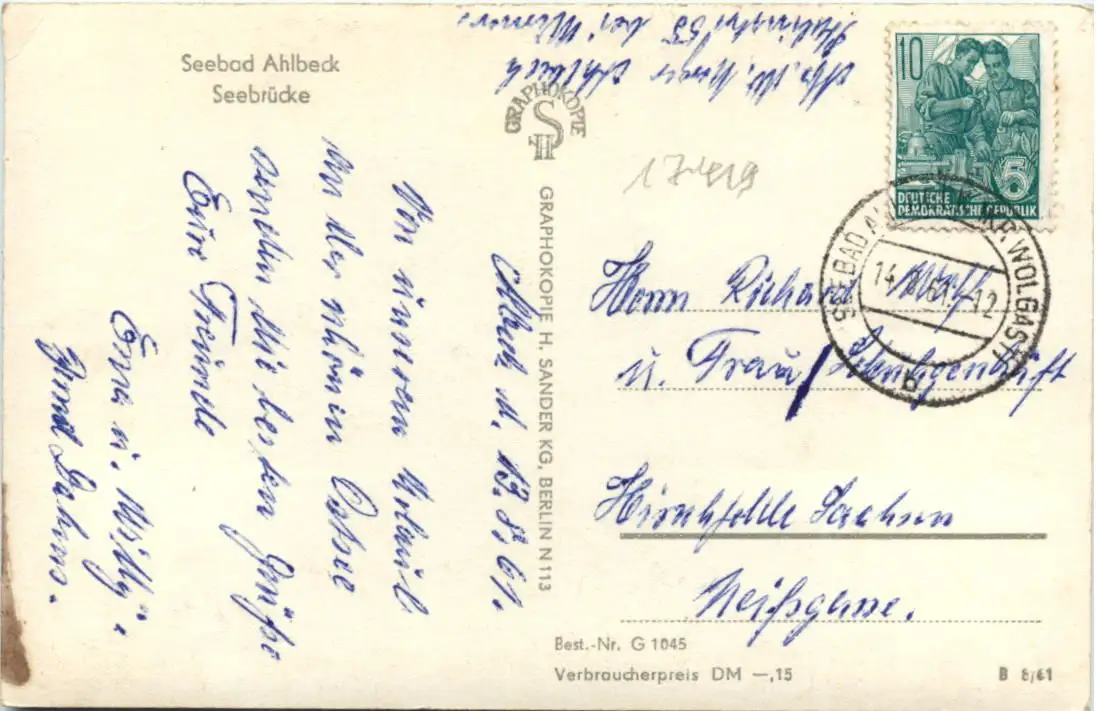 Seebad Ahlbeck
Seebrücke
Ahlbeck d. 13.8.61.
Von unserem Urlaub
an der schönen Ostsee
senden die besten Grüße
Eure Freunde
Erna u. Willy
Ahlbeck
bei
GRAPHOKOPIE
SH
GRAPHOKOPIE H. SANDER KG, BERLIN N 113
17419
10
5
DEUTSCHE
DEMOKRATISCHE REPUBLIK
SEEBAD AHLBECK KR WOLGAST
14.8.61-12
b
Herrn Richard Wolf
u. Frau
Hirschfelde Sachsen
Neißgasse.
Best.-Nr. G 1045
Verbraucherpreis DM —,15
B 8/61